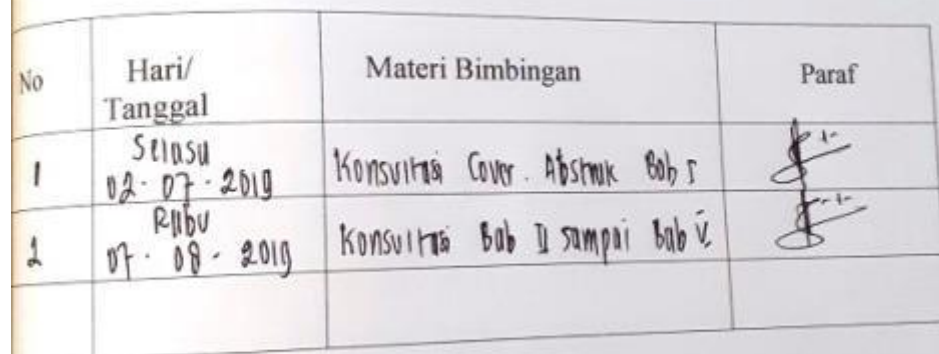 No Hari/ Tanggal Materi Bimbingan Paraf
1 Selasa
02-07-2019 Konsultasi Cover. Abstrak Bab I
2 Rabu
07-08-2019 Konsultasi Bab II sampai Bab V.